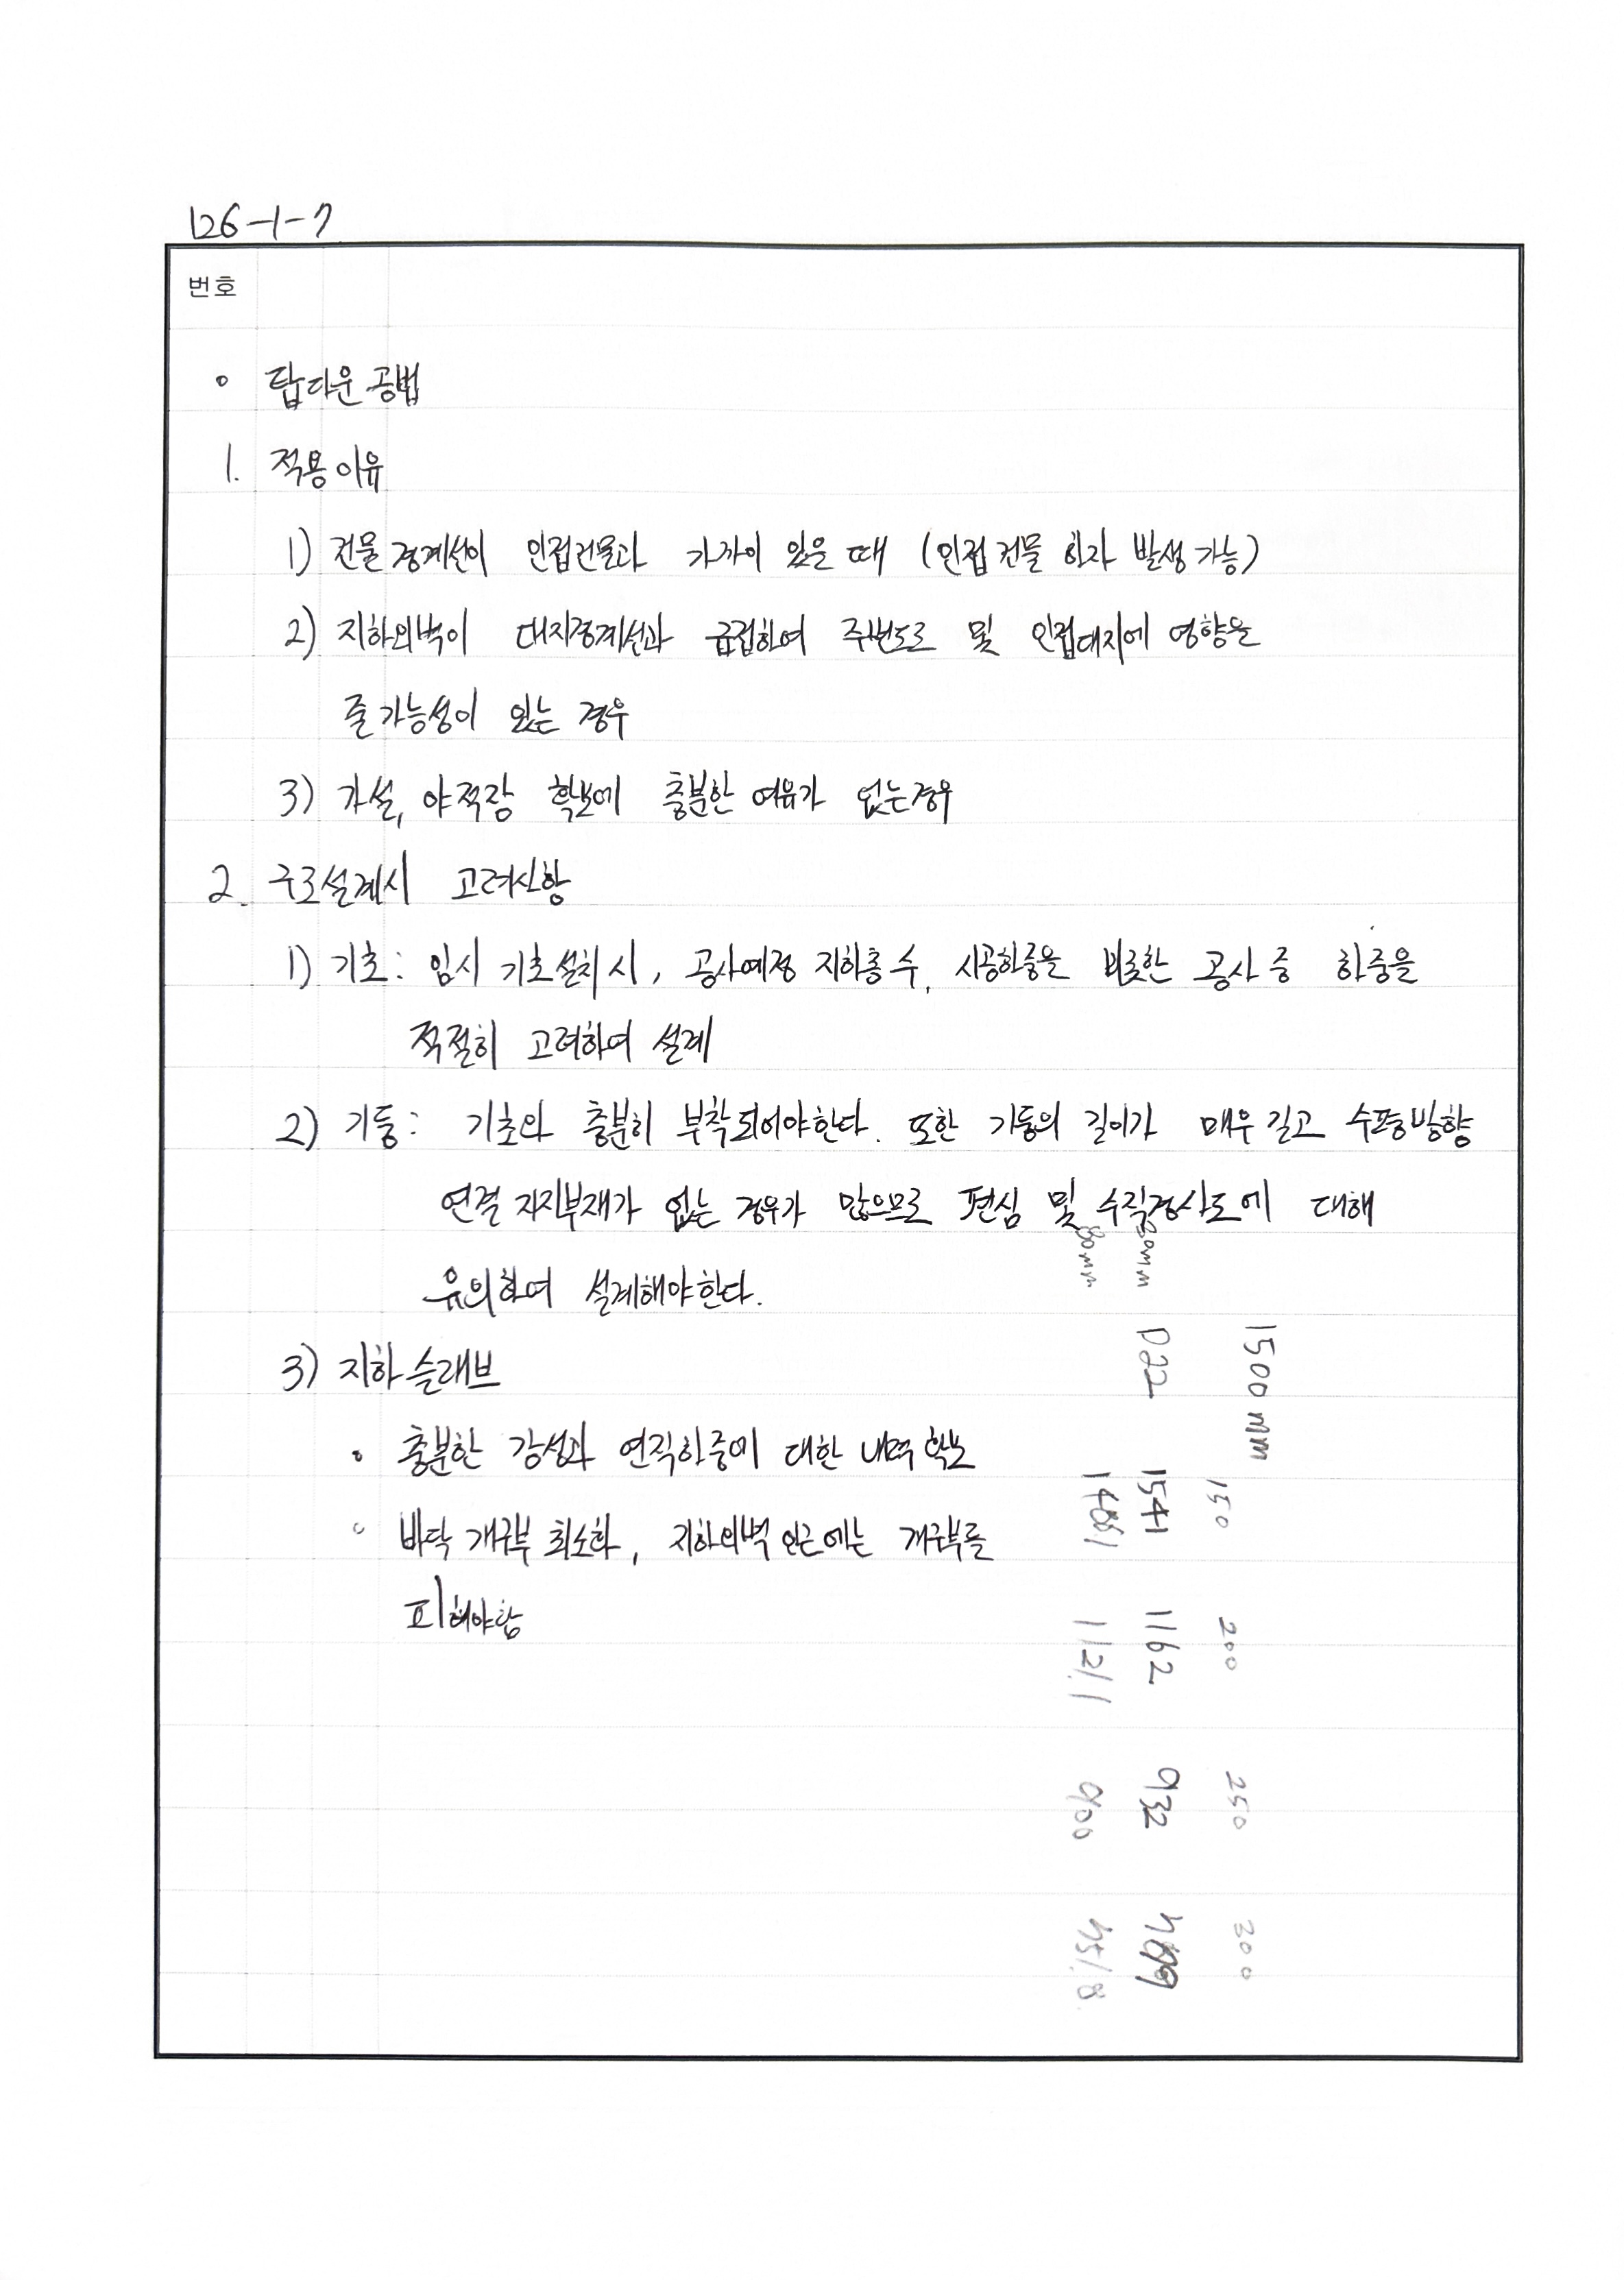 126-1-7
번호
o 탑다운 공법
1. 적용이유
1) 건물경계선이 인접건물과 가까이 있을 때 (인접건물 하자 발생 가능)
2) 지하외벽이 대지경계선과 근접하여 주변도로 및 인접대지에 영향을
줄 가능성이 있는 경우
3) 가설, 야적장 확보에 충분한 여유가 없는 경우
2. 구조설계시 고려사항
1) 기초: 임시 기초설치시, 공사예정 지하층수, 시공하중을 비롯한 공사 중 하중을
적절히 고려하여 설계
2) 기둥: 기초와 충분히 부착되어야한다. 또한 기둥의 길이가 매우 길고 수평방향
연결 지지부재가 없는 경우가 많으므로 편심 및 수직경사도에 대해
유의하여 설계해야한다.
3) 지하슬래브
∘ 충분한 강성과 연직하중에 대한 내력 확보
∘ 바닥 개구부 최소화, 지하외벽 인근에는 개구부를
피해야함
1500mm
150 200 250 300
80mm D22 1541 1162 932
80mm 1121.1 900